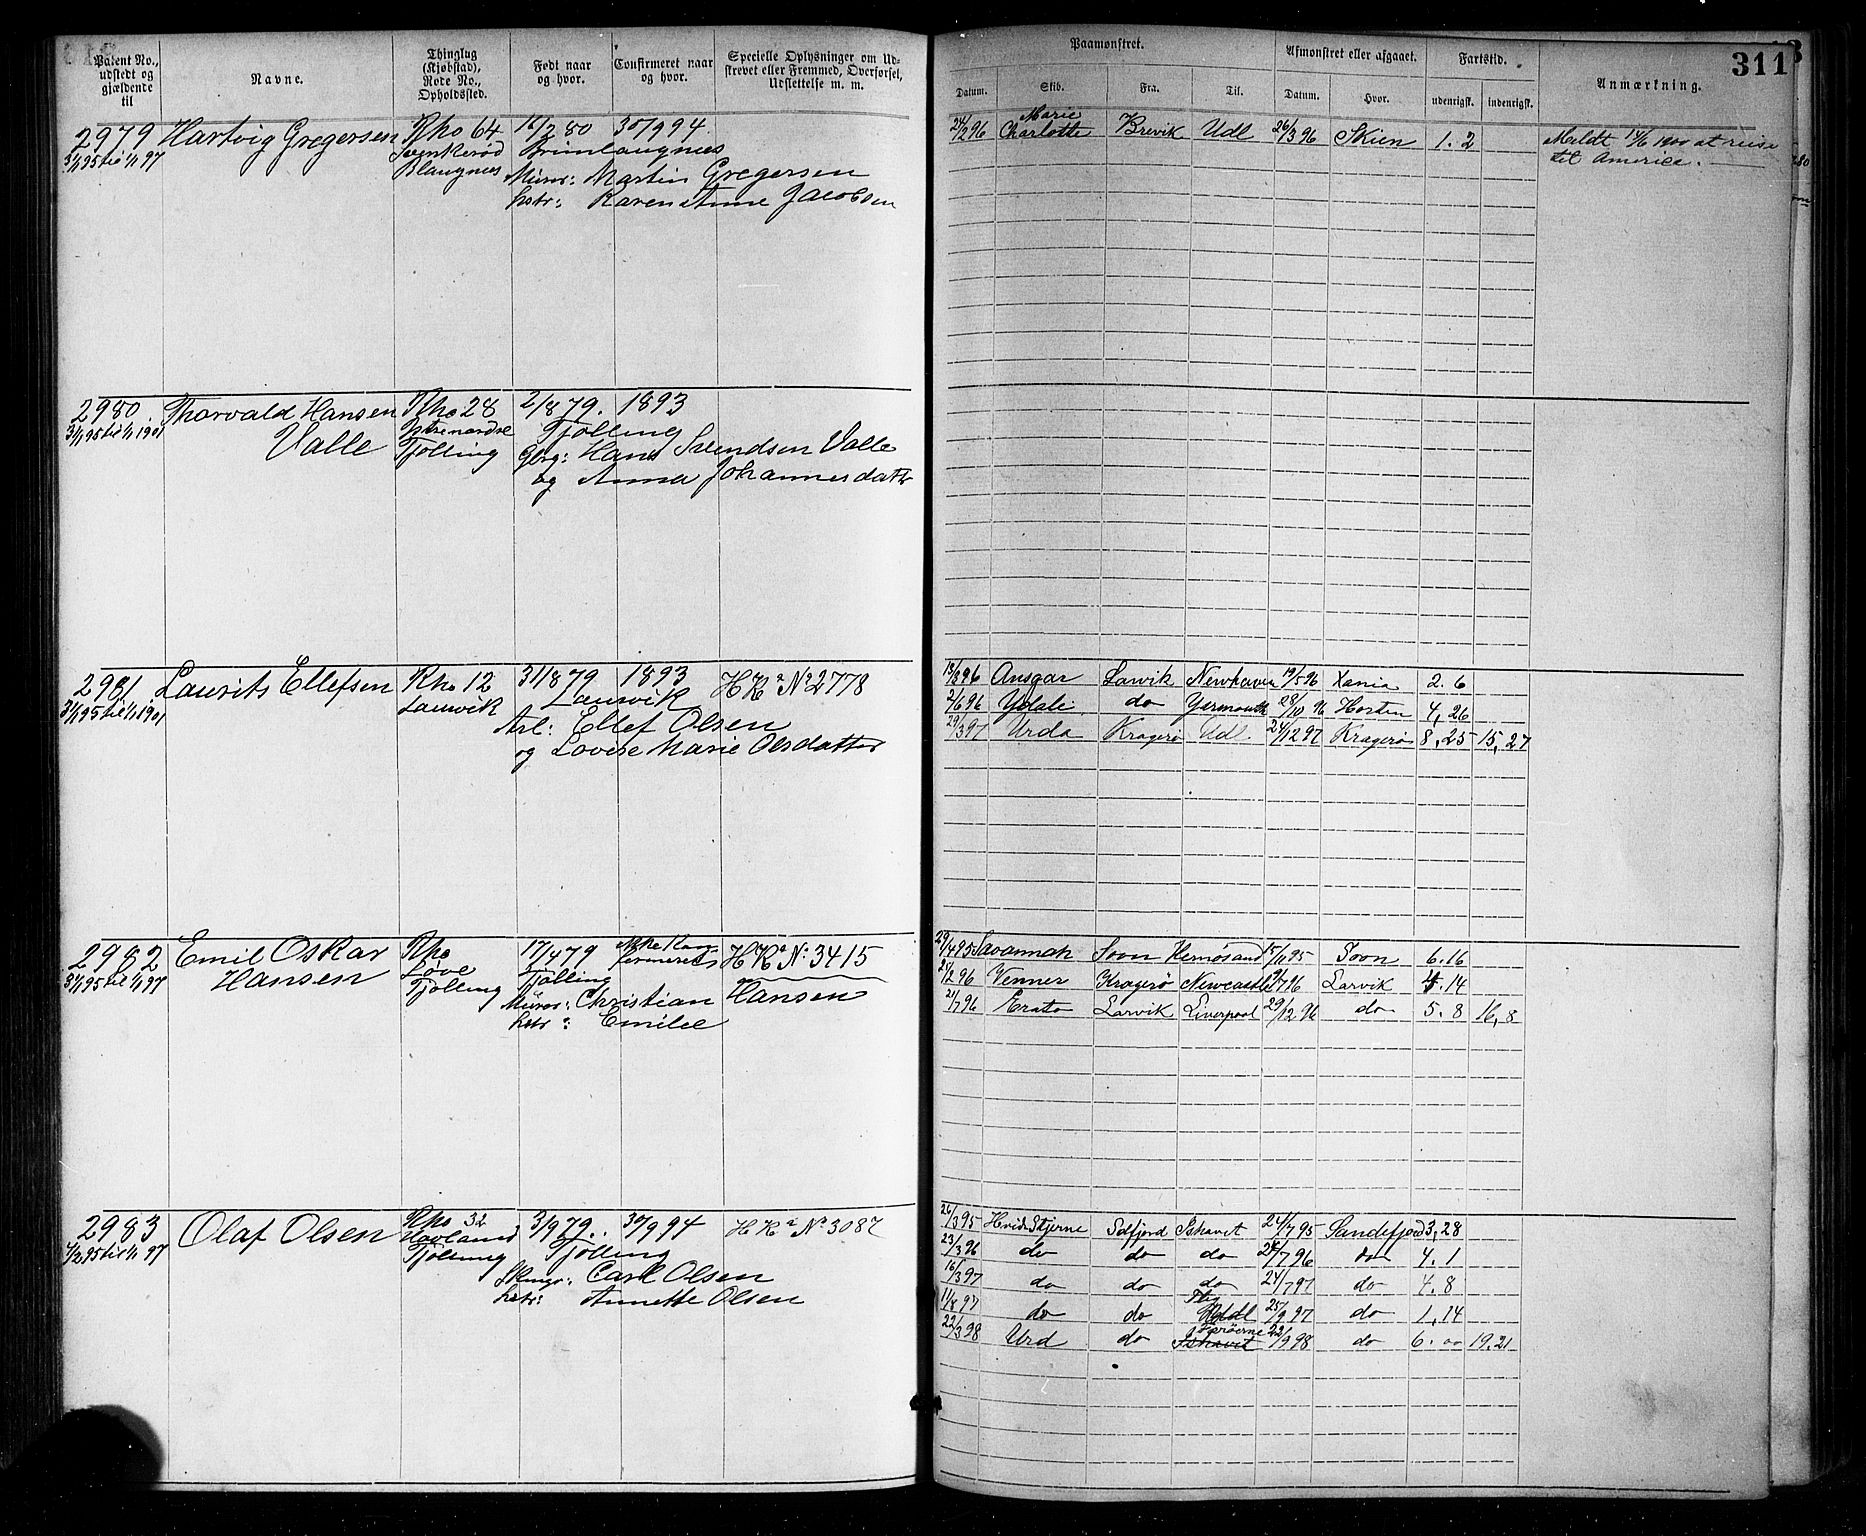 Patent No., udstedt og gjældende til
Navne.
Thinglag (Kjøbstad), Rode No., Opholdssted.
Født naar og hvor.
Confirmeret naar og hvor.
Specielle Oplysninger om Udskrevet eller Fremmed, Overførsel, Udslettelse m. m.
Paamønstret.
Afmønstret eller afgaaet.
Fartstid.
Anmærkning.
311
Datum. Skib. Fra. Til. Datum. Hvor. udenrigsk. indenrigsk.
2979 Hartvig Gregersen Rho 64 12/2 80 30/9 94.
31/1 95 til 1/1 97
Blaugnes
Murer: Martin Gregersen
hstr: Karen Anne Jacobsen
24/2 96 Marie Charlotte Brevik Udl 26/3 96 Skien 1. 2
Meldt 1900 at reise
til America.
2980 Thorvald Hansen Rho 28 2/8 79. 1893
31/1 95 til 1/1 1901 Valle Tjølling Tjølling
Gbrg: Hans Svendsen Valle
og Anna Johannesdatter
2981 Laurits Ellefsen Rho 12 31/8 79 1893 HR No 2778
31/1 95 til 1/1 1901 Laurvik Laurvik
Arb: Ellef Olsen
og Lovise Marie Olsdatter
13/3 96 Ansgar Larvik Newhaven 19/5 96 Xania 2. 6
2/6 96 Ydale do Yarmouth 28/10 96 Horten 4, 26
29/3 97 Urda Kragerø Udl 24/12 97 Kragerø 8, 25 15, 27
2982 Emil Oskar Rho 17/4 79 Ikke Konfirmeret HR No 3415
31/1 95 til 1/1 97 Hansen Løve Tjølling
Tjølling
Murer: Christian Hansen
hstr: Emilee
29/4 95 Savannah Sovn Hernøsand 15/11 95 Sovn 6. 16
2/2 96 Venner Kragerø Newcastle 7 96 Larvik 4. 14
21/7 96 Erato Larvik Liverpool 29/12 96 do 5. 8 16, 8
2983 Olaf Olsen Rho 32 3/9 79. 30/9 94 HR No 3087
1/2 95 til 1/1 97 Tjølling Tjølling
Carl Olsen
hstr: Annette Olsen
26/3 95 Hvidstjerne Sdfjord Ishavet 24/7 95 Sandefjord 3, 28
23/3 96 do do do 24/7 96 do 4. 1
16/3 97 do do do 24/7 97 do 4. 8
11/8 97 do do 25/9 97 do 1, 14
22/3 98 Urd do Færøerne Ishavet 22/9 98 do 6. 00 19. 21